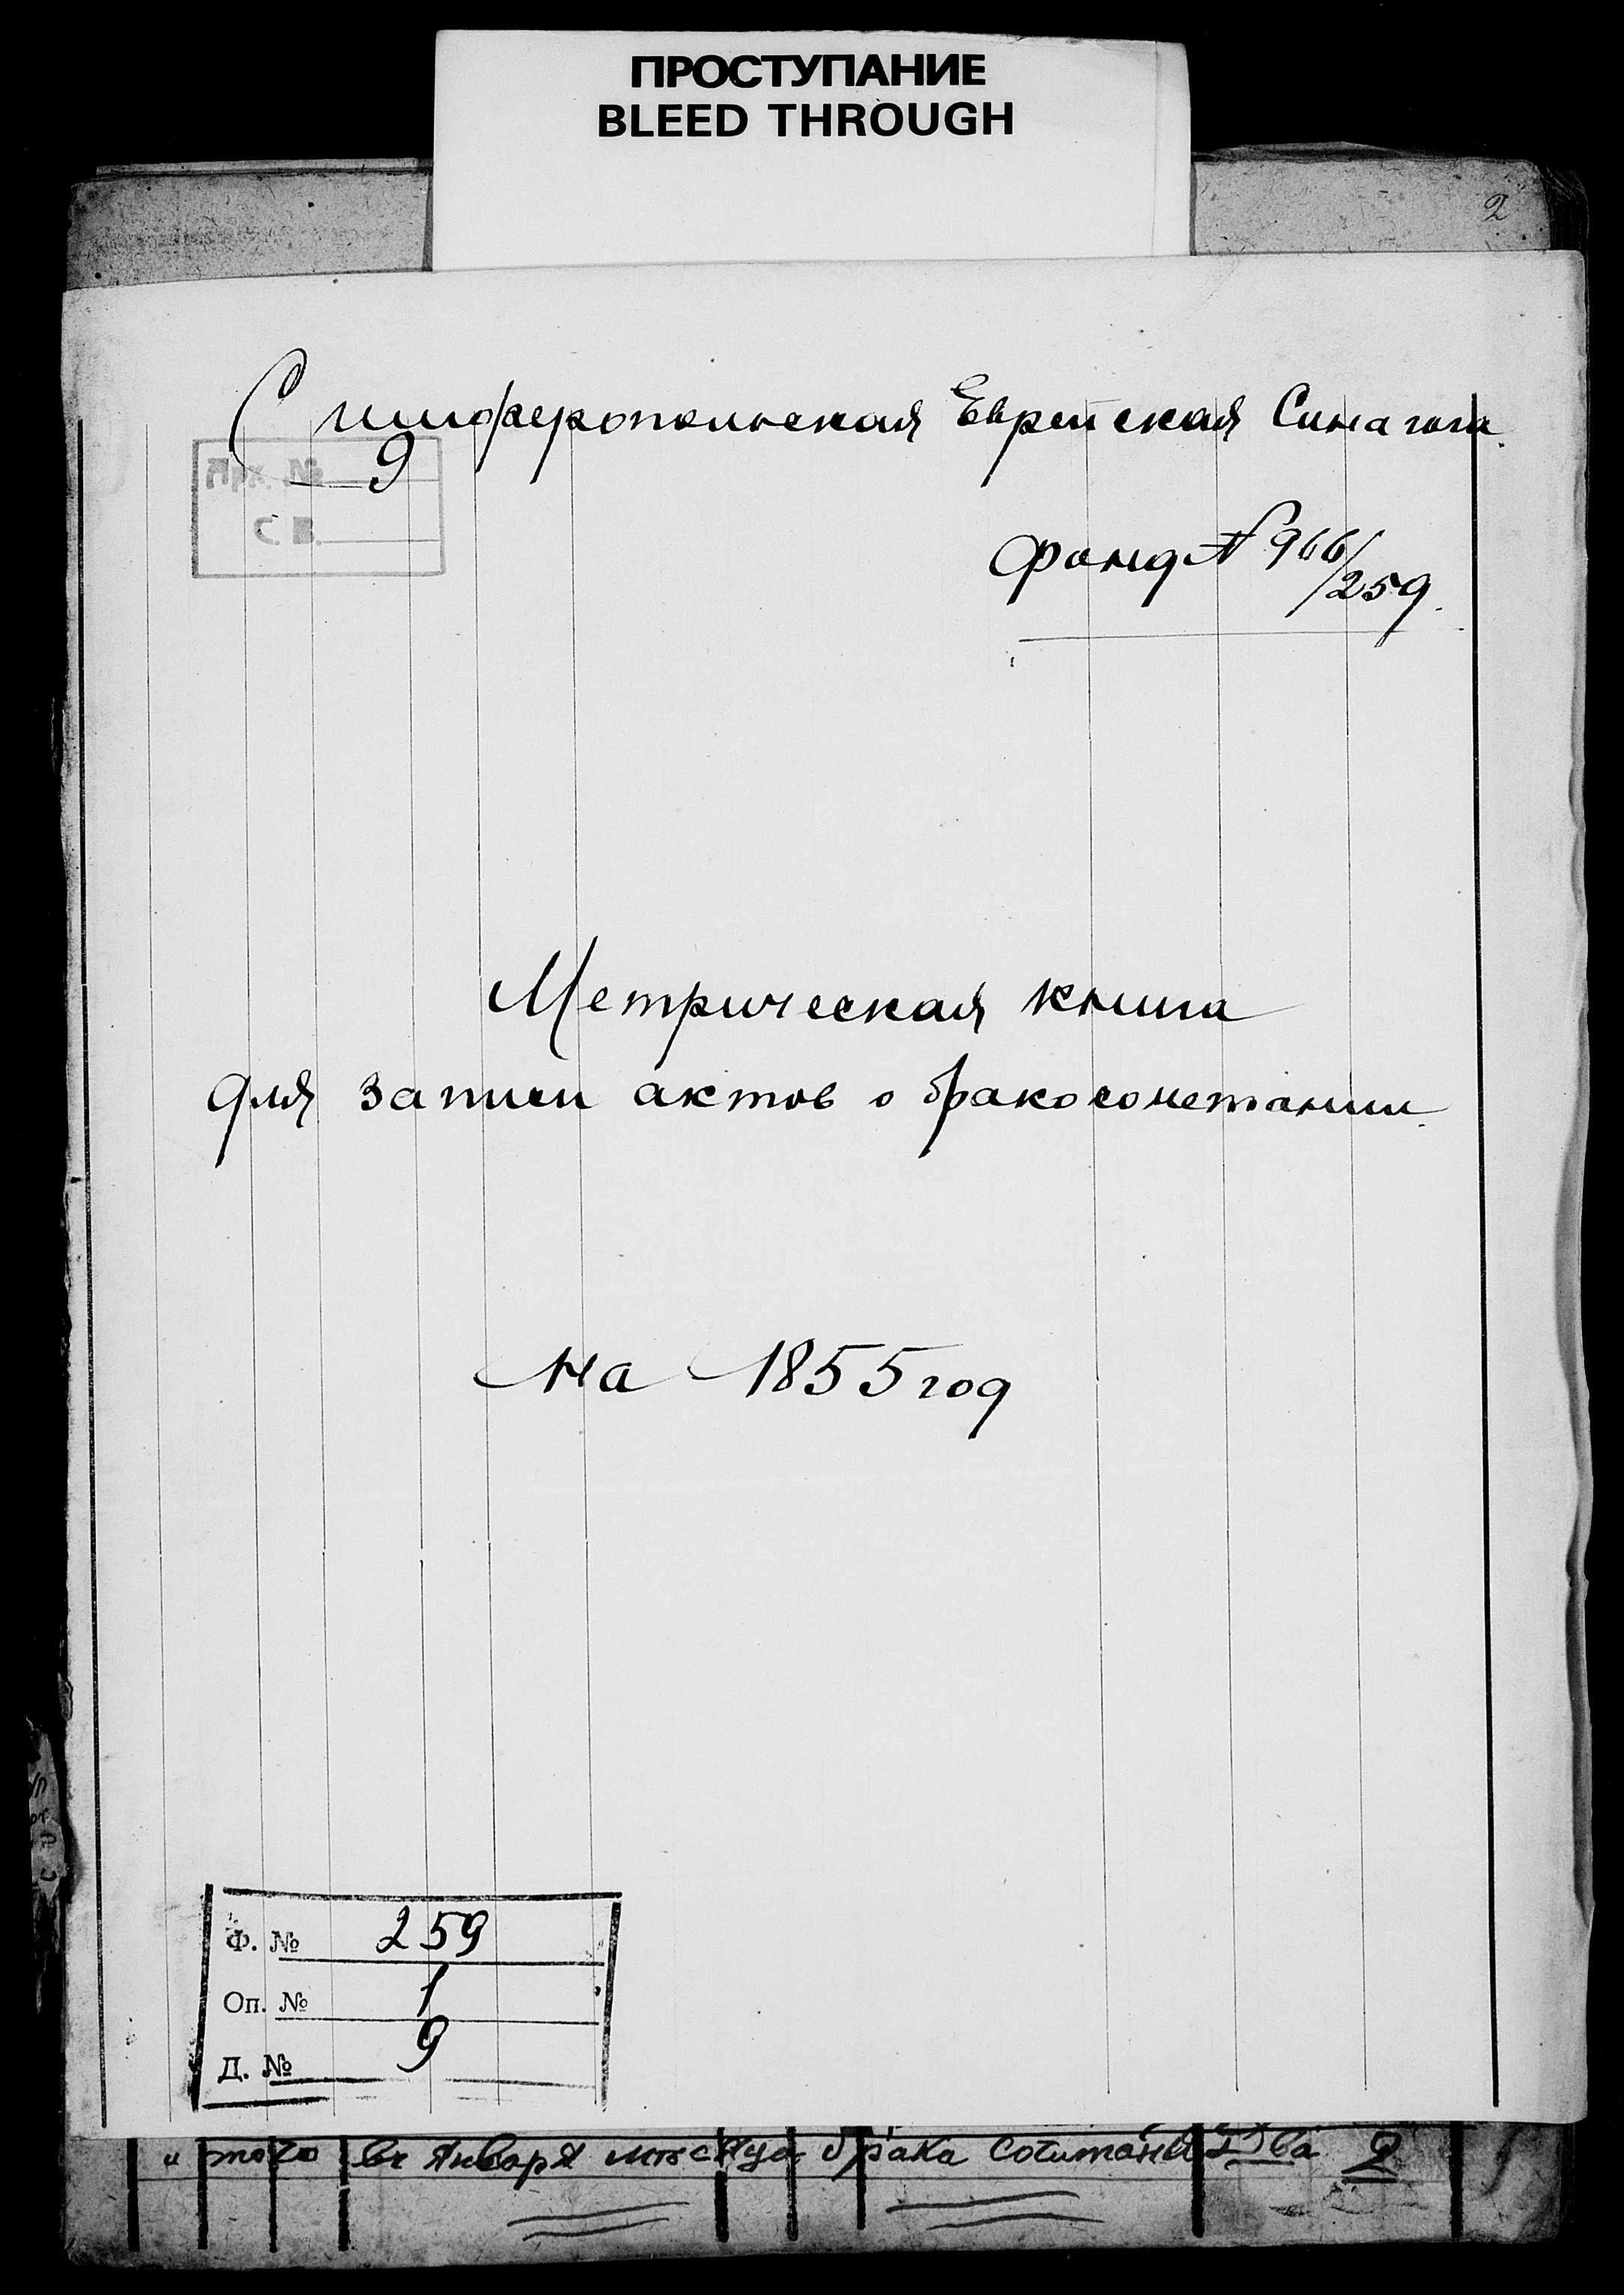 ПРОСТУПАНИЕ
BLEED THROUGH
2
Симферопольская Еврейская Синагога.
Арх. № 9
С. В.
Фонд N 966/259.
Метрическая книга
для записи актов о бракосочетании.
на 1855 год
Ф. № 259
Оп. № 1
Д. № 9
и того въ Января мѣсяца брака сочитаний два 2